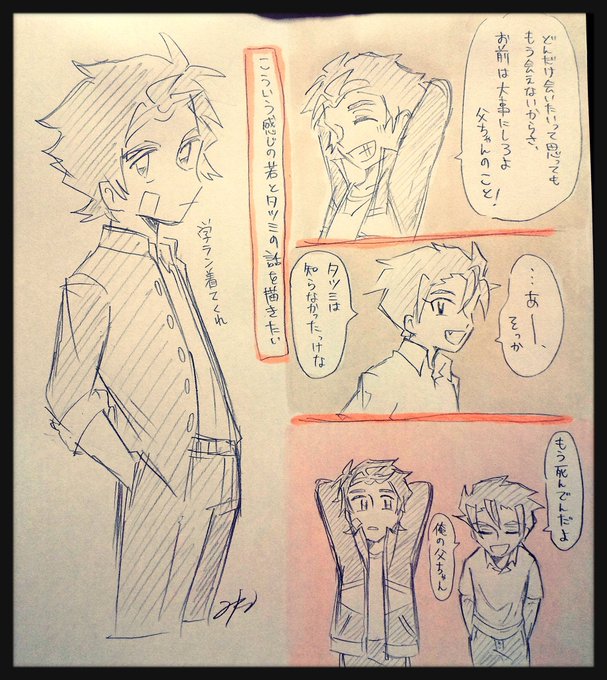 どんだけ会いたいって思っても
もう会えないからさ、
お前は大事にしろよ
父ちゃんのこと!
…あー、
そっか
タツミは
知らなかったっけな
もう死んでんだよ
俺の父ちゃん
こういう感じの若とタツミの話を描きたい
学ラン着てくれ